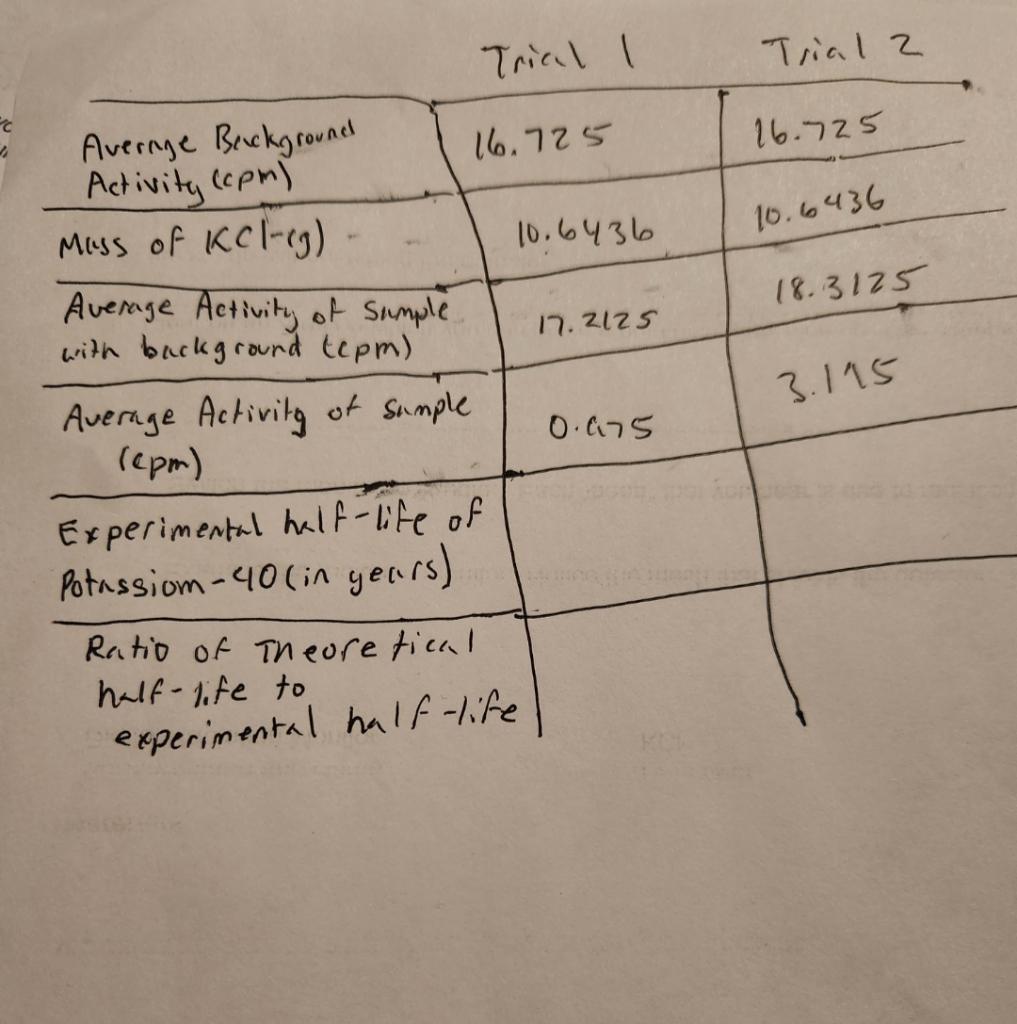 Trial 1 Trial 2
Average Background 16.725 16.725
Activity (cpm)
Mass of KCl (g) 10.6436 10.6436
Average Activity of sample 17.2125 18.3125
with background (cpm)
Average Activity of sample 0.975 3.175
(cpm)
Experimental half-life of
Potassiom-40 (in years)
Ratio of Theoretical
half-life to
experimental half-life